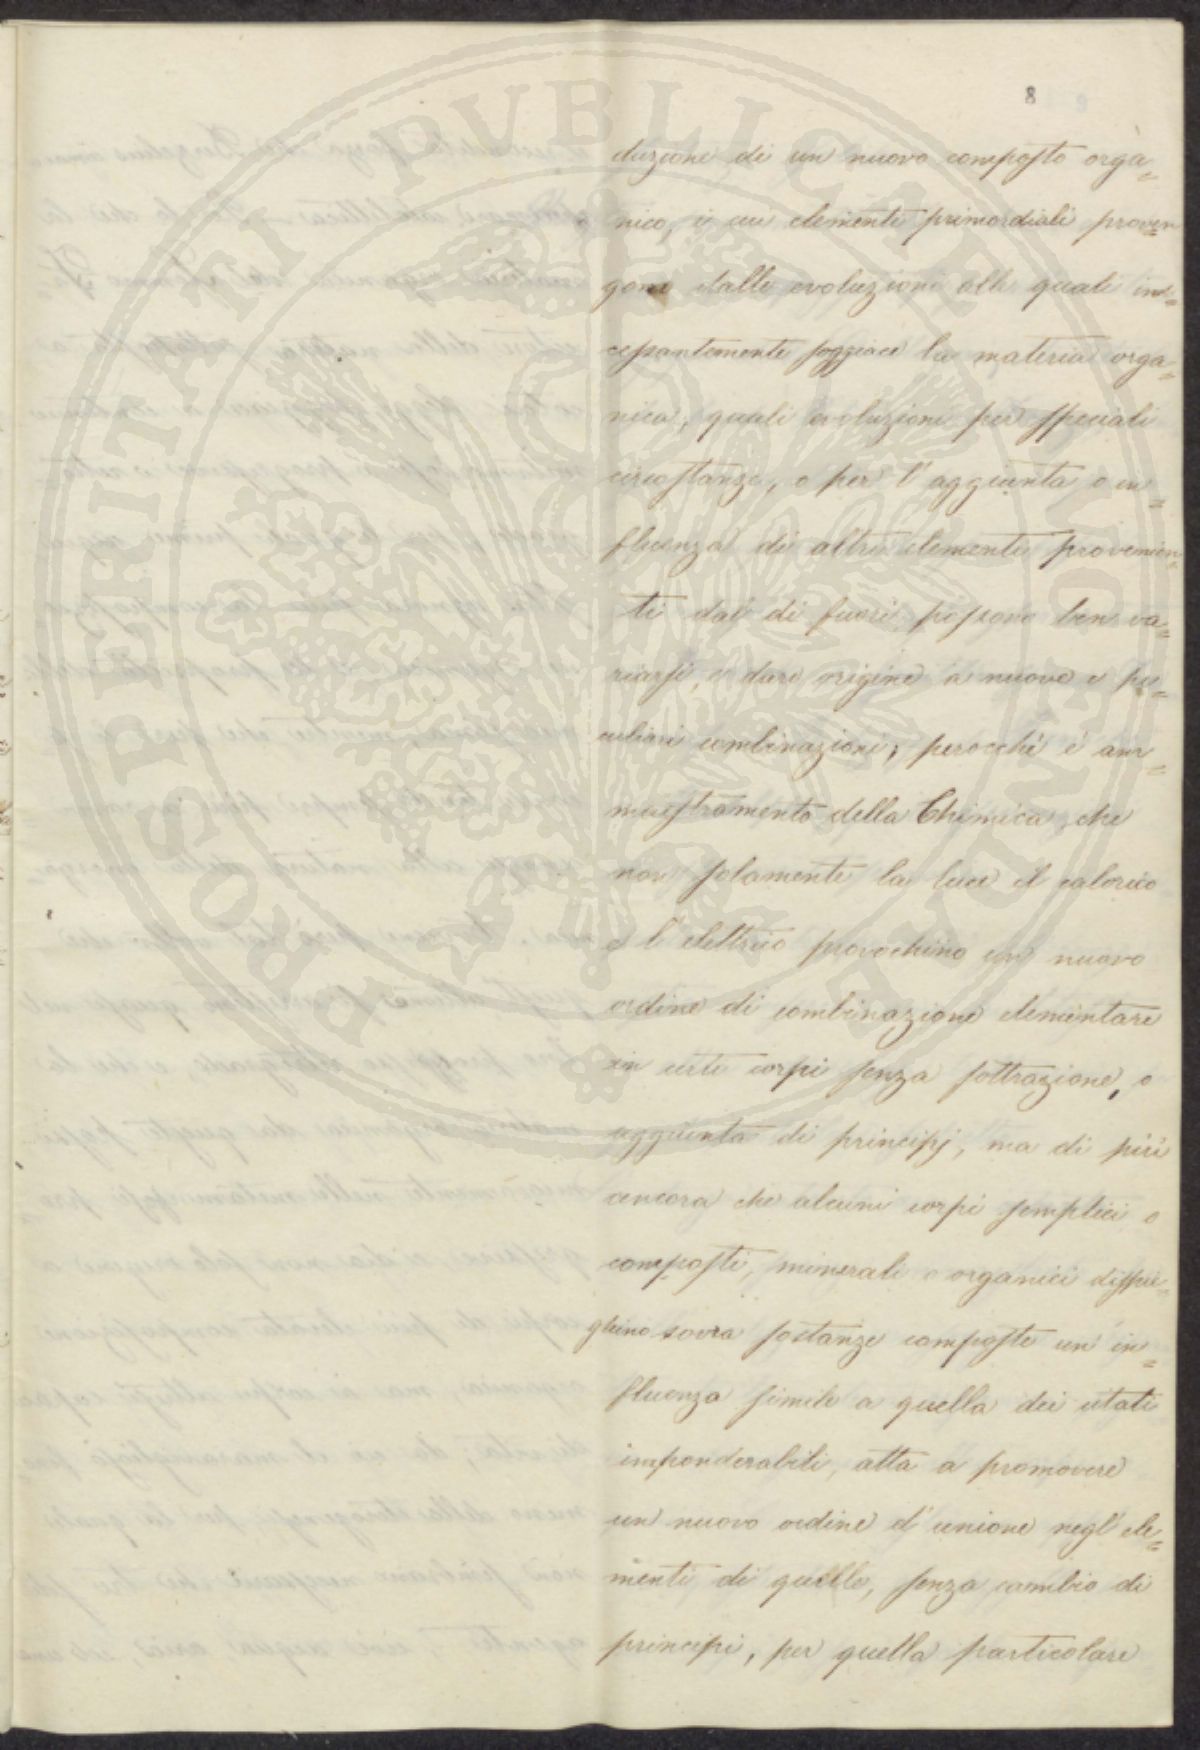 8
duzione di un nuovo composto orga=
nico, i cui elementi primordiali proven
gono dalle evoluzioni alle quali in=
cessantemente soggiace la materia orga=
nica, quali evoluzioni per speciali
circostanze, o per l'aggiunta o in=
fluenza di altri elementi provenien=
ti dal di fuori possono ben va=
riarsi, e dare origine a nuove e pe=
culiari combinazioni, perocchè è am=
maestramento della Chimica, che
non solamente la luce il calorico
e l'elettrico provochino un nuovo
ordine di combinazione elementare
in certi corpi senza sottrazione, o
aggiunta di principj, ma di più
ancora che alcuni corpi semplici o
composti, minerali o organici dispie=
ghino sovra sostanze composte un in=
fluenza simile a quella dei citati
imponderabili, atta a promovere
un nuovo ordine d'unione negl'ele=
menti di quelle, senza cambio di
principi, per quella particolare
PROSPERITATI PUBLICAE AUGENDAE